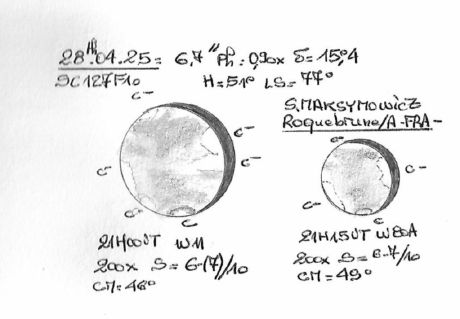 28.04.25= 6,7" Ph: 0,90x δ=15°,4
SC127F10 H=51° LS=77°
C-
C-
C-
C-
C-
C
21H00UT W11
200x S=6-(7)/10
CM=46°
S.MAKSYMOWICZ
Roquebrune/A-FRA-
C-
C-
C-
C
21H15UT W80A
200x S=6-7/10
CM=49°